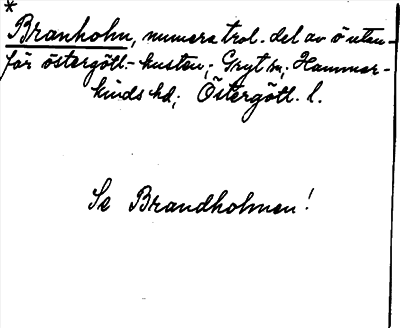 *
Branholm, numera trol. del av ö utan-
för östergötl.-kusten; Gryt sn; Hammar-
kinds hd; Östergötl. l.
Se Brandholmen!